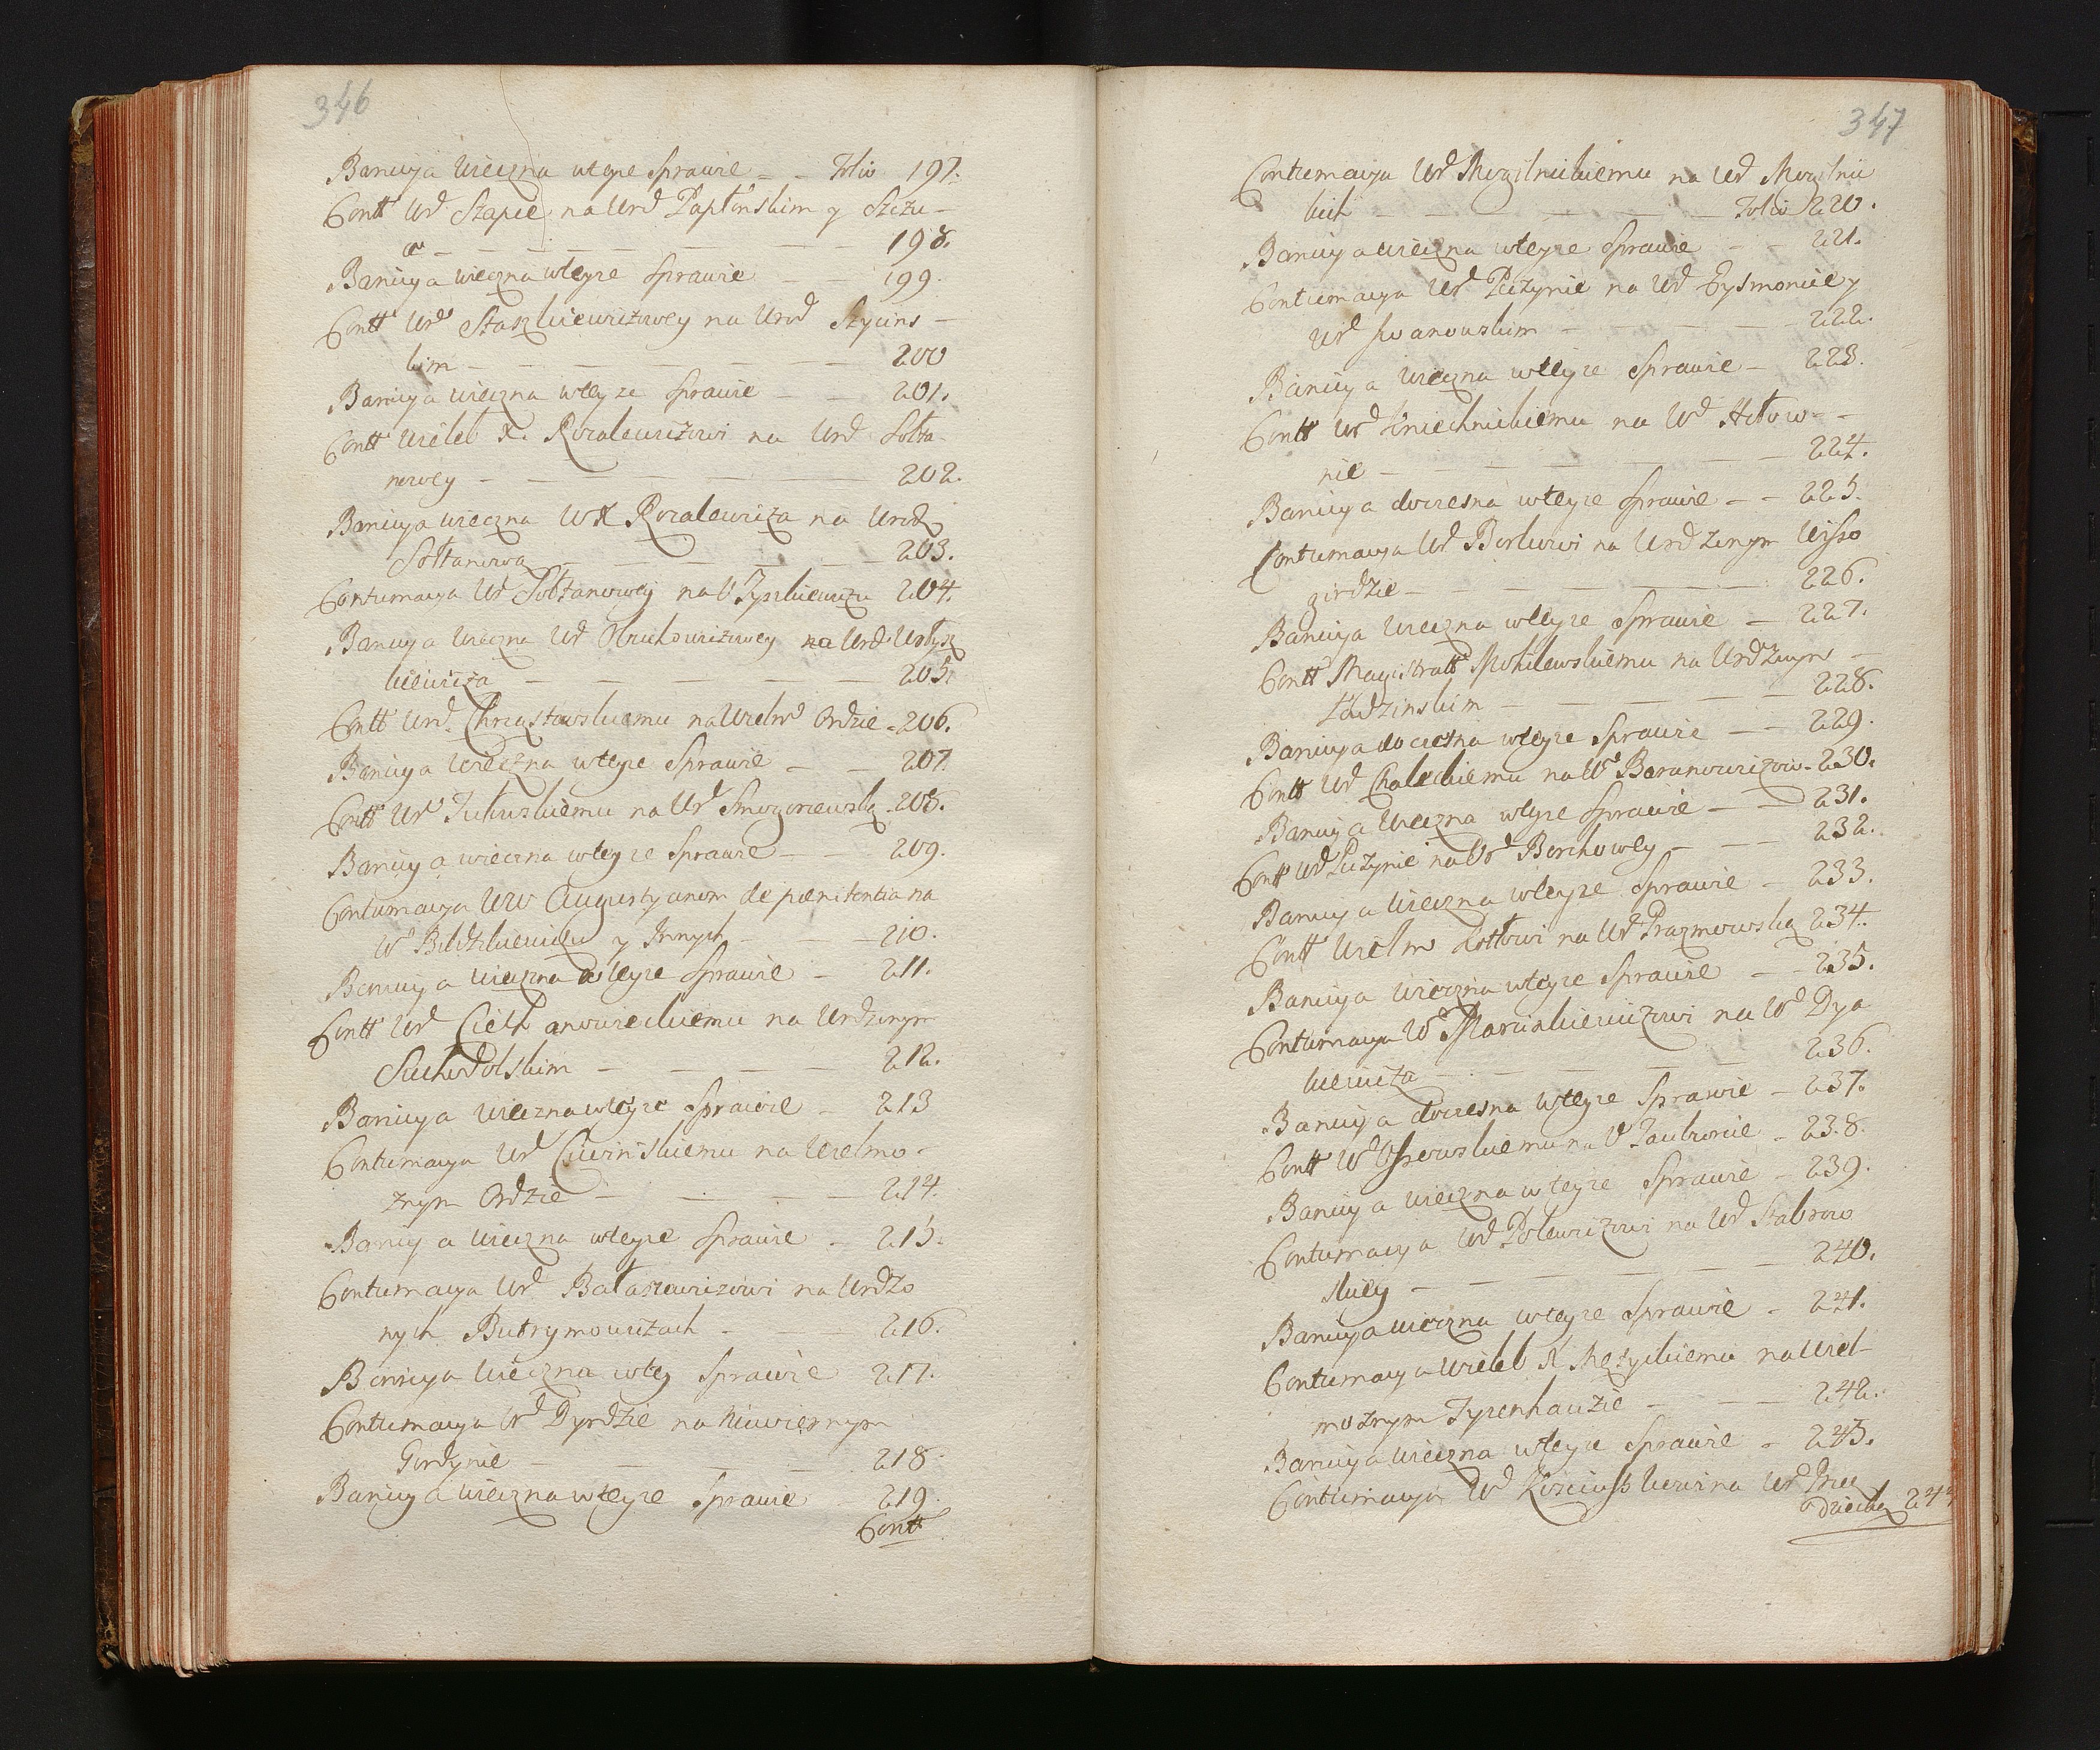 346
Banicya wieczna wteyże Sprawie – – Folio 197.
Contt Urd Szapce na Urd Paplinskim y Szczu –
a – – – – 198.
Banicya wieczna wteyze Sprawie – – 199.
Contt Urd Staszkiewiczowey na Urod Szycins –
kim – – – – 200
Banicya wieczna wteyze Sprawie – – 201.
Contt Wieleb X. Rozalewiczowi na Urd Sołta
nowey – – – – 202.
Banicya wieczna WX Rozalewicza na Urodz
Sołtanową – – – – 203.
Contumacya Ur Sołtanowey na U Tyszkiewiczu 204.
Banicya wieczna Urd Obuchowiczowey na Urd Ustysz
kiewicza – – – – 205.
Contt Urd. Chrząstowskiemu na Wielmo Ordzie – 206.
Banicya wieczna wteyze Sprawie – – 207.
Contt Urd Jutuskiemu na Urd Smogorzewską – 208.
Banicya wieczna wteyze Sprawie – – 209.
Contumacya WW Augustyanom de pœnitentia na
Wo Bildzikiewiczu y Innych – – 210.
Banicya wieczna wteyze Sprawie – 211.
Contt Urd Ciechanowieckiemu na Urdzonym
Suchodolskim – – – 212.
Banicya wieczna wteyze Sprawie – 213
Contumacya Urd Ciwinskiemu na Wielmo –
znym Ordzie – – – – 214.
Banicya wieczna wteyze Sprawie – 215.
Contumacya Urd Bałaszewiczowi na Urdzo
nych Butrymowiczach – – 216.
Banicya wieczna wtey Sprawie 217.
Contumacya Urd Dyrdzie na Niewiernym
Gordynie – – – 218
Banicya wieczna wteyze Sprawie 219.
Contt
347
Contumacya Urd Mogilnickiemu na Urd Mogilnic
kich – – – – Folio 220.
Banicya wieczna wteyze Sprawie – – 221.
Contumacya Urd Puzynie na Urd Eysmoncie y
Urd Iwanowskim – – – – 222.
Banicya wieczna wteyze Sprawie – 223.
Contt Urd Kniechnickiemu na Urd Hołow –
nie – – – – 224.
Banicya doczesna wteyze Sprawie – – 225.
Contumacya Urd Borkowi na Urdzonym Wisso
girdzie – – – – 226.
Banicya wieczna wteyze Sprawie – 227.
Contt Magistratt Mohilewskiemu na Urdzonym –
Ładzinskim – – – – 228.
Banicya doczesna wteyze Sprawie – – 229.
Contt Urd Chaleckiemu na Urd Baranowiczow – 230.
Banicya wieczna wteyze Sprawie – – 231.
Contt Urd Puzynie na Urd Borchowey – – – 232.
Banicya wieczna wteyze Sprawie – 233.
Contt Wielmo Kottowi na Urd Prazmowską 234.
Banicya wieczna wteyze Sprawie – – 235.
Contumacya Wo Marcinkiewiczowi na Wo Dya
kiewicza – – – – 236.
Banicya doczesna wteyze Sprawie – 237.
Contt Wo Ussowskiemu na U Jaubronie – 238.
Banicya wieczna wteyze Sprawie – 239.
Contumacya Urd Polewiczowi na Urd Stabrow
skiey – – – – 240.
Banicya wieczna wteyze Sprawie – 241.
Contumacya Wieleb X Mezyckiemu na Wiel –
moznym Tyzenhauzie – – – 242.
Banicya wieczna wteyze Sprawie – 243.
Contumacya Urd Kosciuszkowi na Urd Prze
dziecką 244